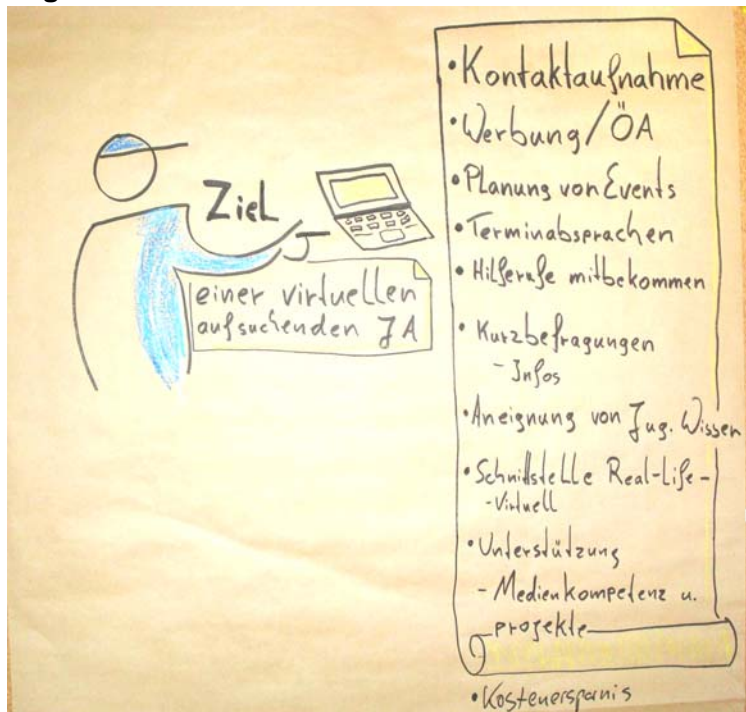 Ziel
einer virtuellen
aufsuchenden JA
• Kontaktaufnahme
• Werbung/ÖA
• Planung von Events
• Terminabsprachen
• Hilferufe mitbekommen
• Kurzbefragungen
- Infos
• Aneignung von Jug. Wissen
• Schnittstelle Real-Life-
-Virtuell
• Unterstützung
- Medienkompetenz u.
projekte
• Kostenersparnis